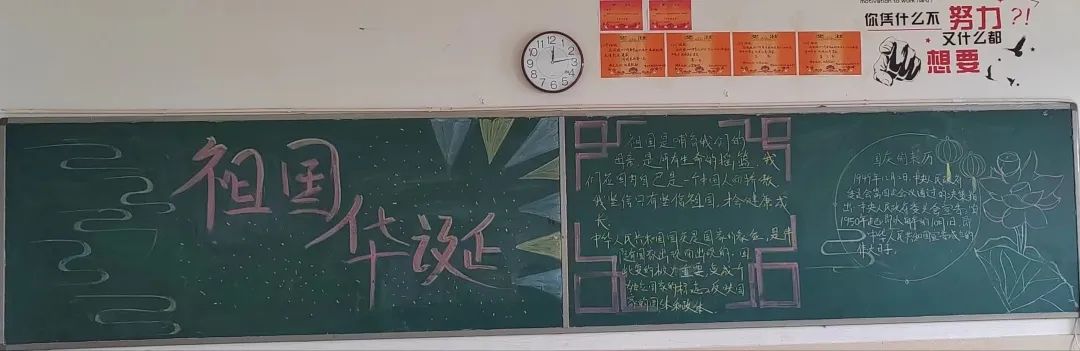 motivation to work hard?
你凭什么不努力?!
又什么都
想要
奖状
奖状
奖状
奖状
祖国
华诞
祖国是哺育我们的
母亲,是所有生命的摇篮,我
们应因为自己是一个中国人而骄傲
我坚信只有坚信祖国,才会健康成
长
中华人民共和国国庆是国家的
随着国家出现而出现的,
重要
独立国家的标志,反映国
家的国体和政体
国庆的来历
1949年12月2日,中央人民政府
委员会第四次会议通过的决议指
出:中央人民政府委员会宣告,自
1950年起,即以每年的10月1日,
中华人民共和国宣告成立的
伟大日子。